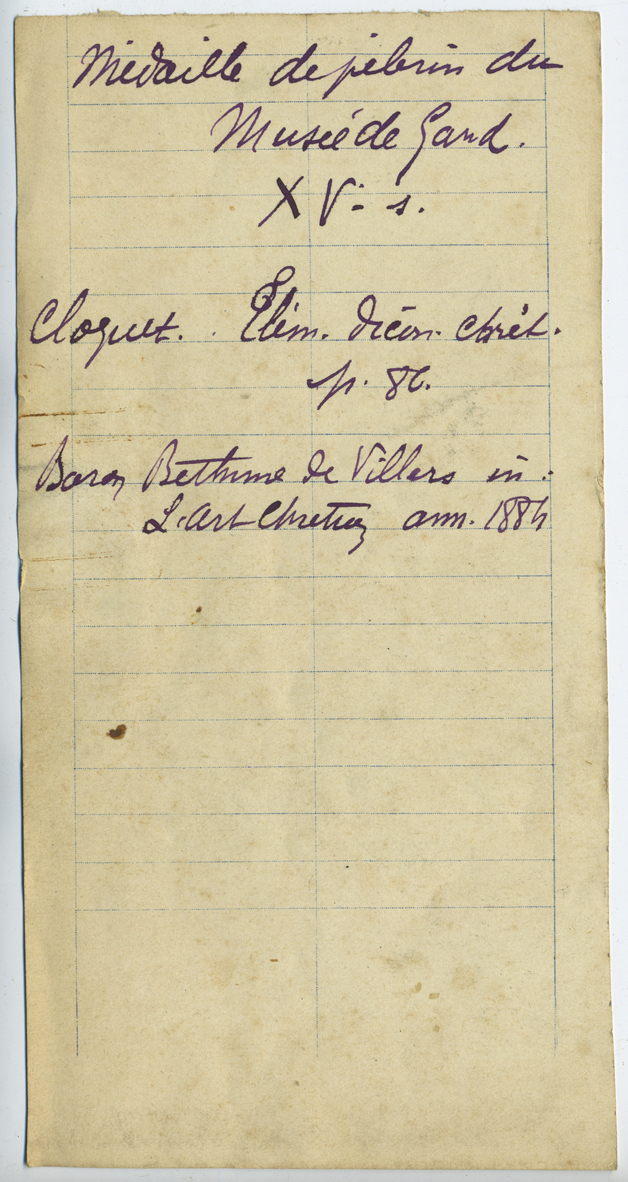 Médaille de pèlerin du
Musée de Gand.
XVe s.
Cloquet. Élém. d'icon. chrét.
p. 86.
Baron Bethune de Villers in:
L'Art Chrétien ann. 188